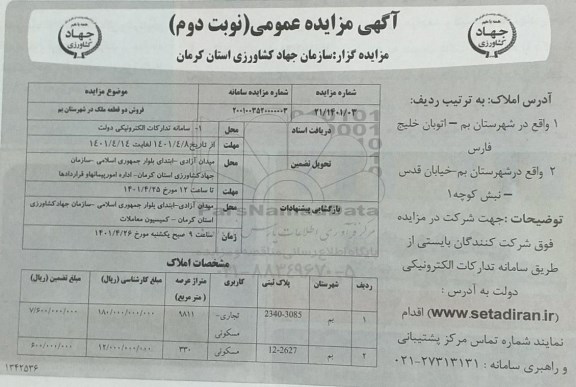 آگهی مزایده عمومی(نوبت دوم)
مزایده گزار:سازمان جهاد کشاورزی استان کرمان
جهاد
کشاورزی
جهاد
کشاورزی
شماره مزایده
شماره مزایده سامانه
موضوع مزایده
۲۱/۱۴۰۱/۰۳
۲۰۰۱۰۰۳۵۲۰۰۰۰۰۰۳
فروش دو قطعه ملک در شهرستان بم
دریافت اسناد
محل
۱- سامانه تدارکات الکترونیکی دولت
مهلت
از تاریخ ۱۴۰۱/۴/۸ لغایت ۱۴۰۱/۴/۱۴
تحویل تضمین
محل
میدان آزادی -ابتدای بلوار جمهوری اسلامی -سازمان
جهادکشاورزی استان کرمان- اداره امورپیمانهاو قراردادها
مهلت
تا ساعت ۱۲ مورخ ۱۴۰۱/۴/۲۵
بازگشایی پیشنهادات
محل
میدان آزادی -ابتدای بلوار جمهوری اسلامی -سازمان جهادکشاورزی
استان کرمان – کمیسیون معاملات
زمان
ساعت ۹ صبح یکشنبه مورخ ۱۴۰۱/۴/۲۶
مشخصات املاک
ردیف
شهرستان
پلاک ثبتی
کاربری
متراژ عرصه
( متر مربع)
مبلغ کارشناسی (ریال)
مبلغ تضمین (ریال)
۱
بم
2340-3085
تجاری-
مسکونی
۹۸۱۱
۱۸۰/۰۰۰/۰۰۰/۰۰۰
۷/۶۰۰/۰۰۰/۰۰۰
۲
بم
12-2627
مسکونی
۳۳۰
۱۲/۰۰۰/۰۰۰/۰۰۰
۶۰۰/۰۰۰/۰۰۰
آدرس املاک: به ترتیب ردیف:
۱ واقع در شهرستان بم – اتوبان خلیج
فارس
۲ واقع درشهرستان بم-خیابان قدس
– نبش کوچه۱
توضیحات :جهت شرکت در مزایده
فوق شرکت کنندگان بایستی از
طریق سامانه تدارکات الکترونیکی
دولت به آدرس :
(www.setadiran.ir) اقدام
نمایند شماره تماس مرکز پشتیبانی
و راهبری سامانه : ۲۷۳۱۳۱۳۱-۰۲۱
۱۳۴۲۵۳۶
ParsNamadData
۰۲۱-۸۸۳۴۹۶۷۰-۵